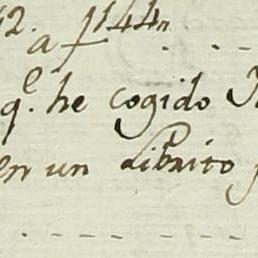 12. a f 144n
q.^e he cogido
en un Librito